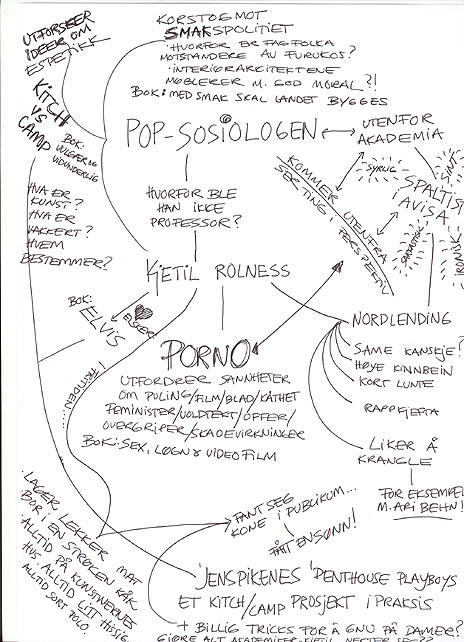 UTFORSKER
IDEER OM
ESTETIKK
KITCH
VS
CAMP
BOK:
VULGÆR OG
VIDUNDERLIG
HVA ER
KUNST?
HVA ER
VAKKERT?
HVEM
BESTEMMER?
KORSTOG MOT
SMAKSPOLITIET
·HVORFOR ER FAGFOLKA
MOTSTANDERE AV FURUKOS?
·INTERIØRARKITEKTENE
MØBLERER M. GOD MORAL?!
BOK: MED SMAK SKAL LANDET BYGGES
POP-SOSIOLOGEN
UTENFOR
AKADEMIA
KOMMER
SER TING I
UTENFRA
PERSPEKTIV
SYRLIG
SPYDIG
SPALTIST
AVISA
SARKASTISK
IRONISK
HVORFOR BLE
HAN IKKE
PROFESSOR?
KJETIL ROLNESS
BOK:
ELVIS
ELSKER
FRITIDEN......
PORNO
UTFORDRER SANNHETER
OM PULING/FILM/BLAD/KÅTHET
FEMINISTER/VOLDTEKT/OFFER/
OVERGRIPER/SKADEVIRKNINGER
BOK: SEX, LØGN & VIDEOFILM
NORDLENDING
SAME KANSKJE?
HØYE KINNBEIN
KORT LUNTE
RAPPKJEFTA
LIKER Å
KRANGLE
FOR EKSEMPEL
M. ARI BEHN!
·LAGER LEKKER MAT
BOR I EN STRØKEN KÅK
·ALLTID PÅ KUNSTNERNES
HUS·ALLTID LITT HISSIG
ALLTID SORT POLO
FANT SEG
KONE I PUBLIKUM...
FÅTT EN SØNN!
'JENSPIKENES 'PENTHOUSE PLAYBOYS
ET KITCH/CAMP PROSJEKT I PRAKSIS
+ BILLIG TRICKS FOR Å GNU PÅ DAMER?
GJØRE ALT AKADEMISK-KJETIL